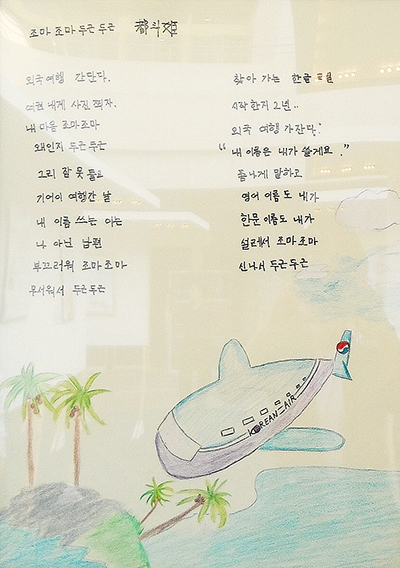 조마 조마 두근 두근 都의姬
외국 여행 간단다.
여권 내게 사진 찍자.
내 마음 조마조마
왜인지 두근 두근
그리 잠 못 들고
기어이 여행간 날
내 이름 쓰는 이는
나 아닌 남편
부끄러워 조마 조마
무서워서 두근두근
찾아 가는 한글 교실
시작 한지 2년..
외국 여행 가잔다.
"내 이름은 내가 쓸게요."
폼나게 말하고
영어 이름도 내가
한문 이름도 내가
설레서 조마 조마
신나서 두근두근
KOREAN AIR